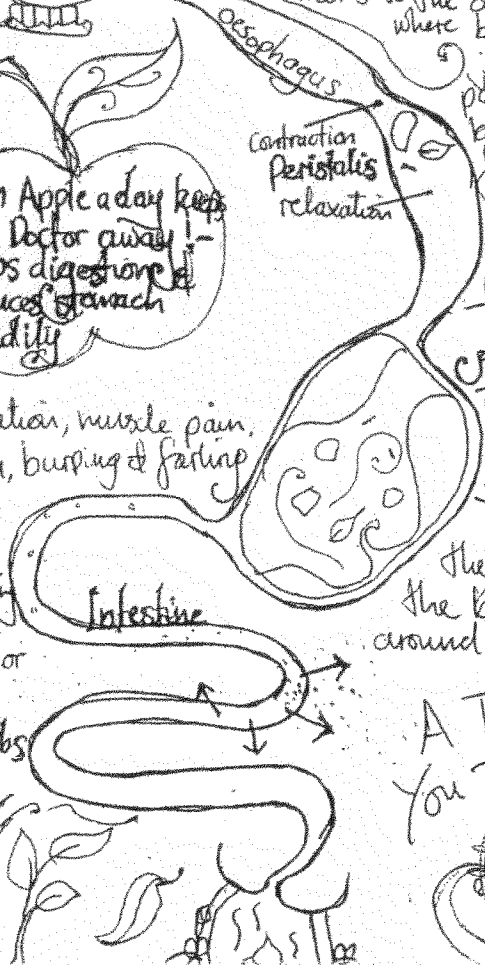 where
oesophagus
contraction
Peristalis -
relaxation
Apple a day keeps
Doctor away! -
digestion &
stomach
muscle pain,
burping & farting
the
Intestine
the
around
or
A
You